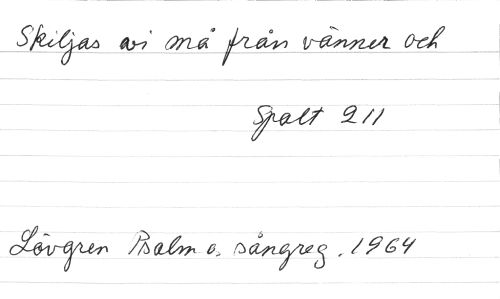 Skiljas vi må från vänner och
Spalt 211
Lövgren Psalm o. sångreg. 1964